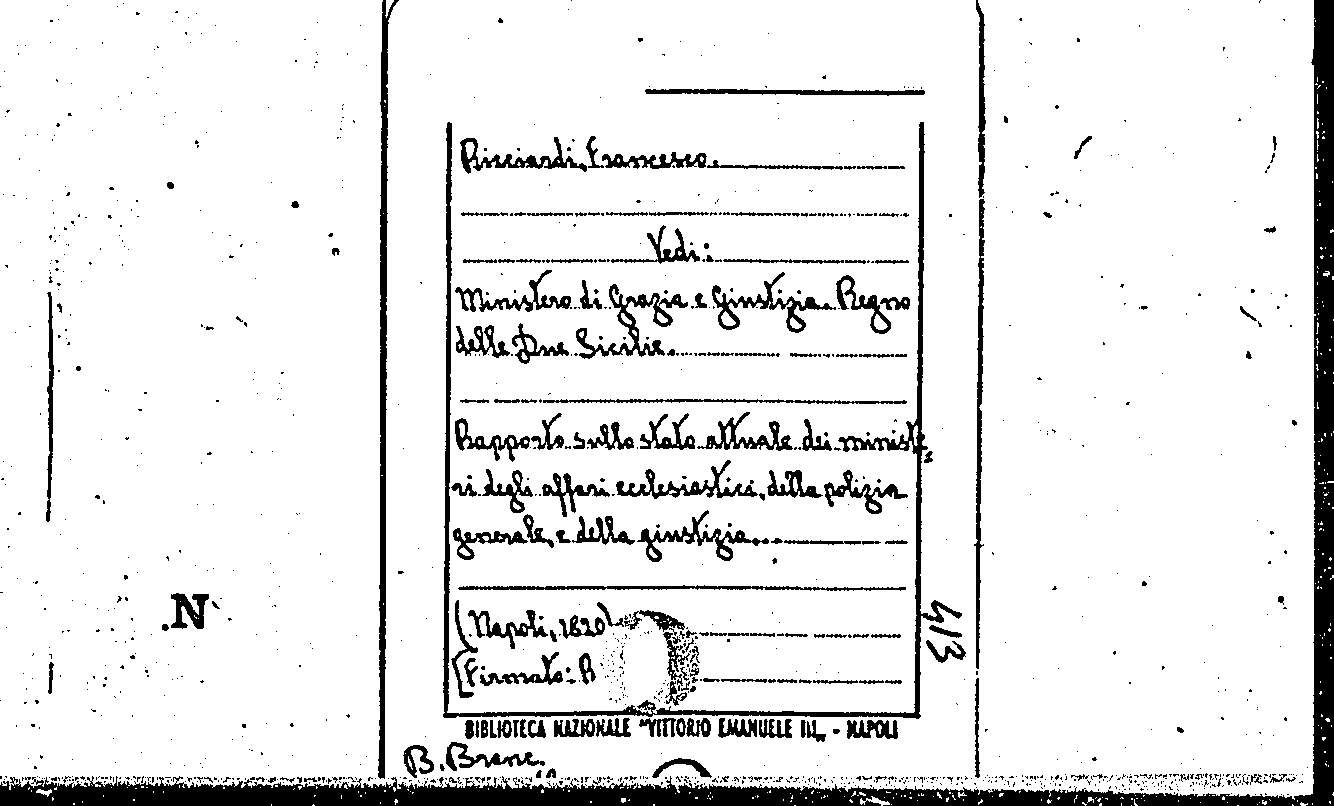 Ricciardi, Francesco.
Vedi:
Ministero di Grazia e Giustizia. Regno
delle Due Sicilie.
Rapporto sullo stato attuale dei ministe,
ri degli affari ecclesiastici, della polizia
generale, e della giustizia...
(Napoli, 1820)
[Firmato: R
413
BIBLIOTECA NAZIONALE "VITTORIO EMANUELE III„ - NAPOLI
B. Branc.
N